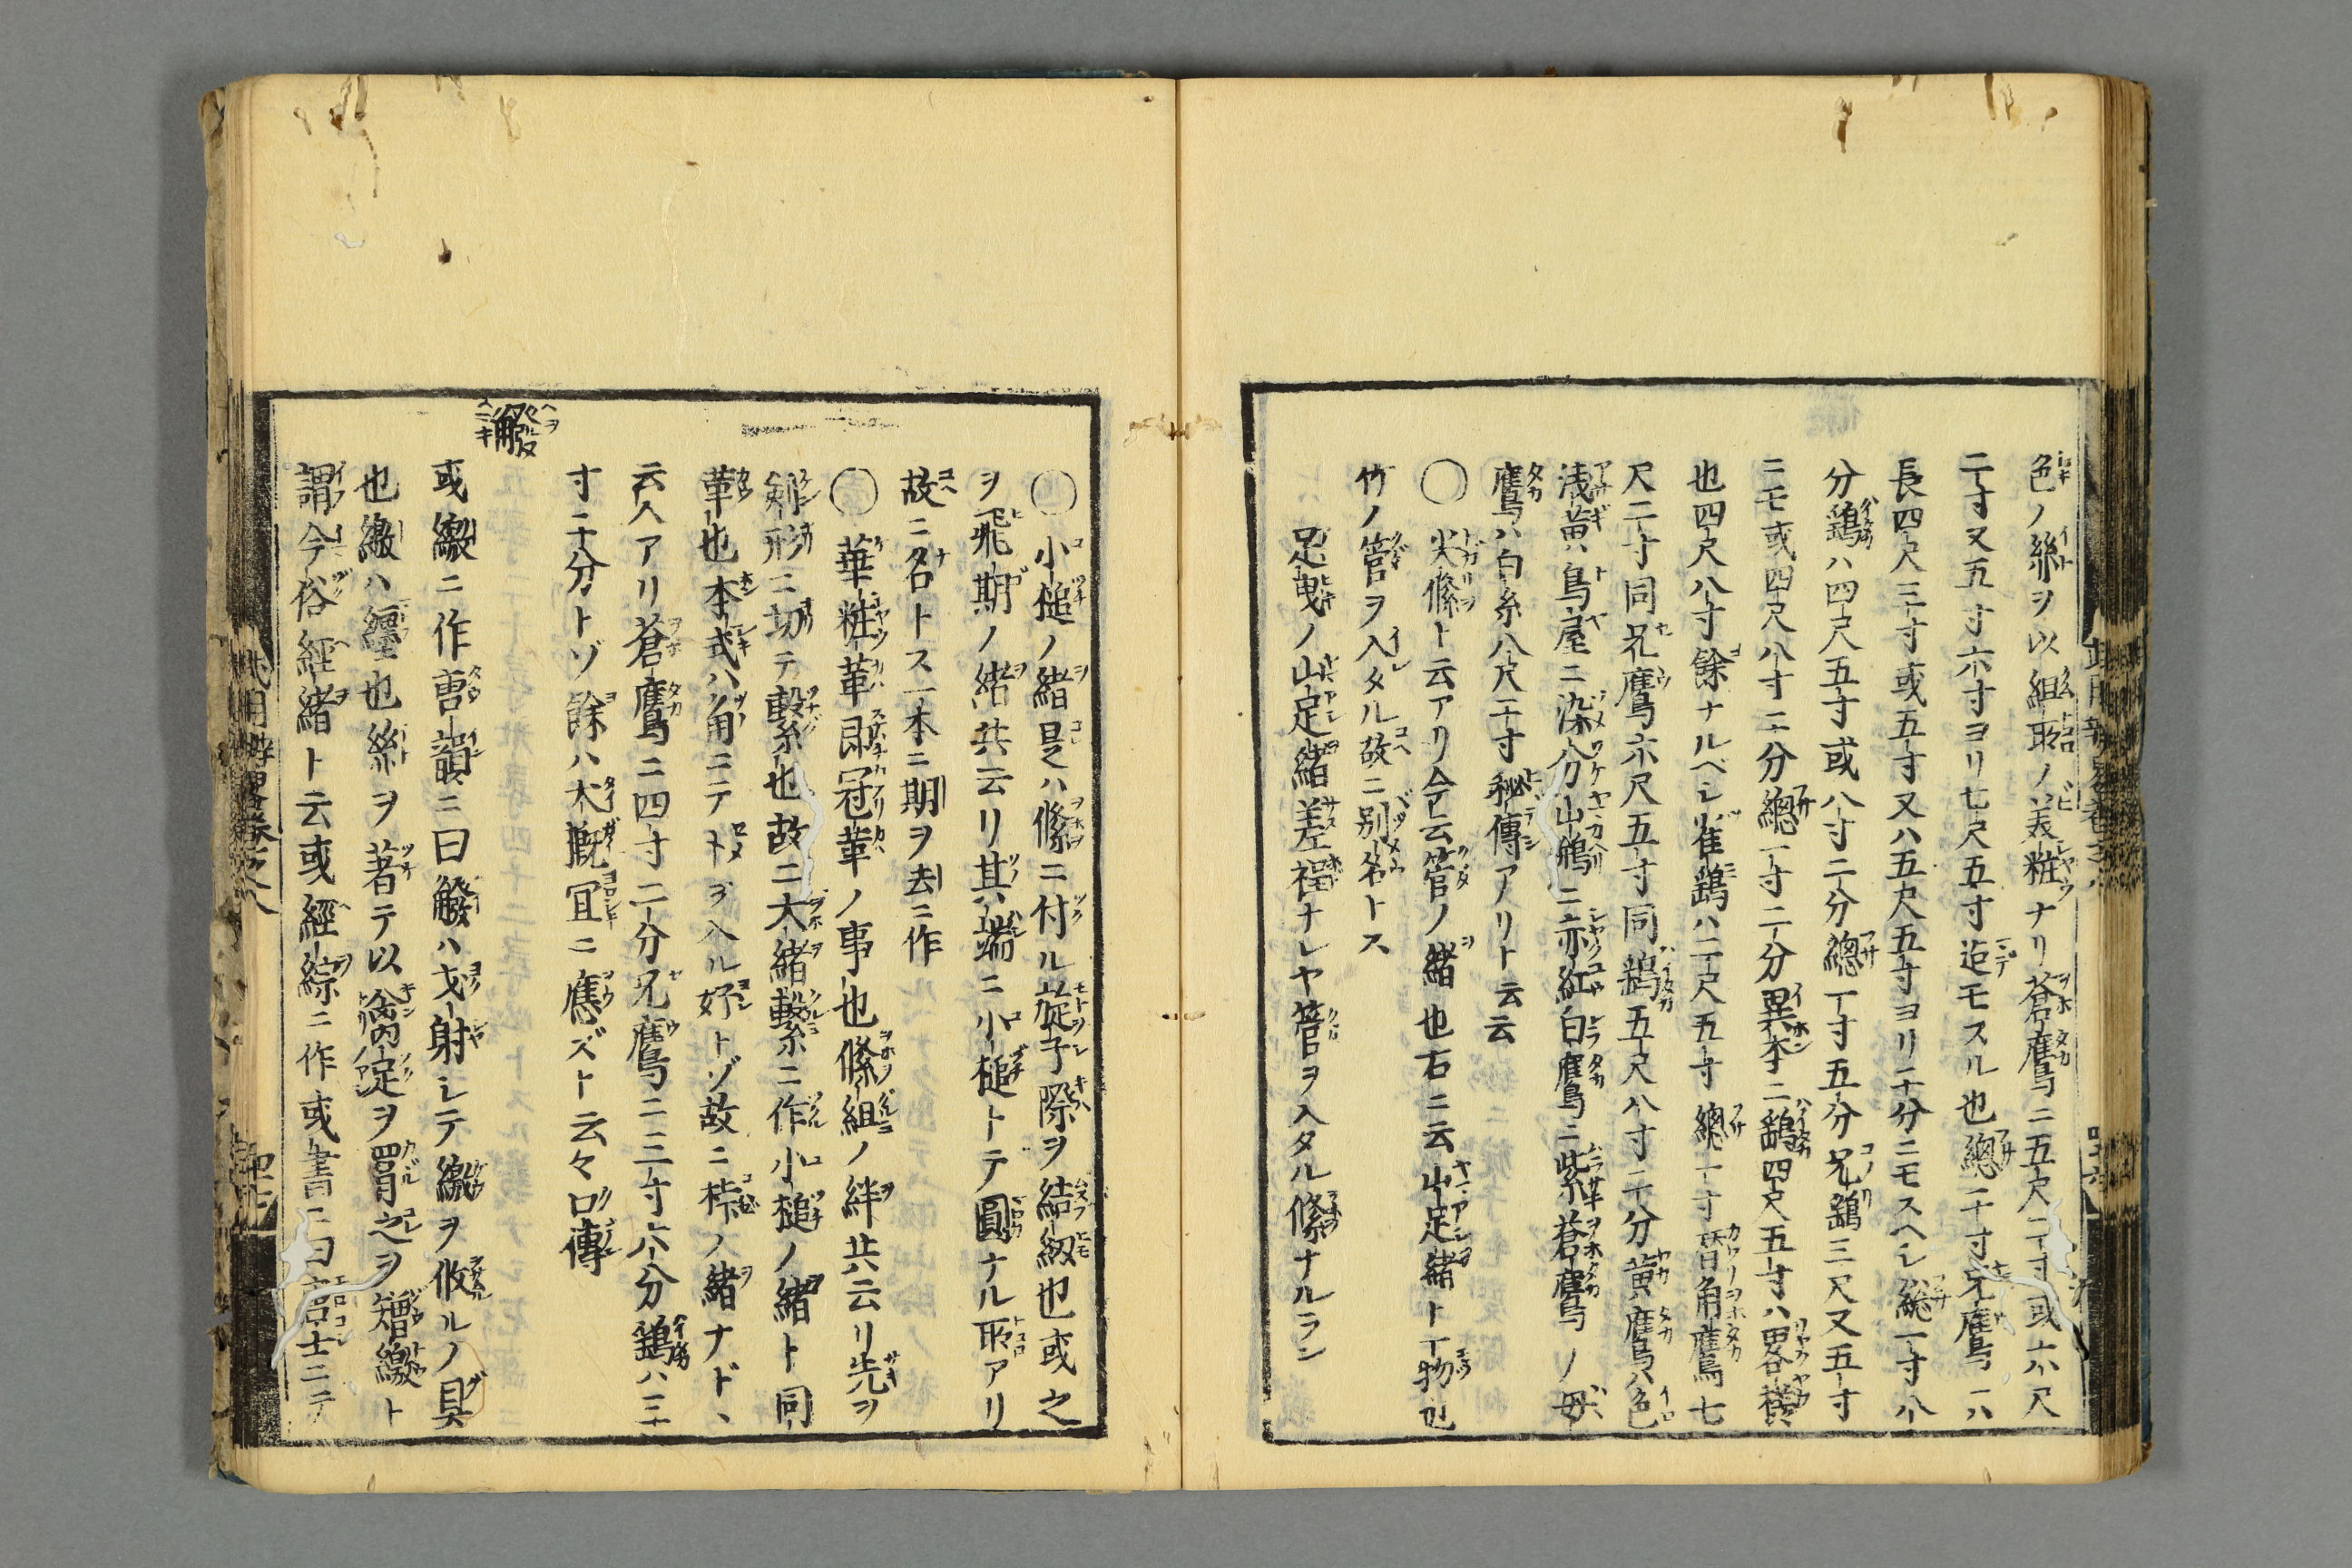 色ノ絲ヲ以組所ノ美粧ナリ蒼鷹ニ五尺二寸或六尺
二寸又五寸六寸ヨリ七尺五寸迠モスル也總二寸兄鷹ハ
長四尺三寸或五寸又ハ五尺五寸ヨリ二分ニモスヘシ総一寸八
分鷂ハ四尺五寸或八寸二分總一寸五分兄鷂三尺又五寸
ニモ或四尺八寸二分總一寸二分異本ニ鷂四尺五寸ハ畧様
也四尺八寸餘ナルベシ雀鷂ハ二尺五寸總一寸角鷹七
尺二寸同兄鷹六尺五寸同鷂五尺八寸二分黄鷹ハ色
浅黄鳥屋ニ染分山鵃ニ赤紅白鷹ニ紫蒼鷹ノ毋
鷹ハ白糸八尺二寸秘傳アリト云云
○尖絛ト云アリ今云管ノ緒也右ニ云山足緒ト一物
竹ノ管ヲ入タル故ニ別名トス
足曳ノ山足緒差裎ナレヤ管ヲ入タル絛ナルラン
○小槌ノ緒是ハ絛ニ付ル旋子際ヲ結級也或之
ヲ飛期ノ緒共云リ其端ニ小槌トテ圓ナル所アリ
故ニ名トス一本ニ期ヲ去ニ作
○華粧革即冠革ノ事也絛組ノ絆共云リ先ヲ
剣形ニ切テ繋也故ニ大緒繋ニ作小槌ノ緒ト同
革也本式ハ角ニテ入ル好トゾ故ニ緒ナド、
云人アリ蒼鷹ニ四寸二分兄鷹ニ三寸六分鷂ハ三
寸二分トゾ餘ハ大概冝ニ應ズト云々口傳
䌫
或繳ニ作唐韻ニ曰ハ弋射シテ繳ヲ收ルノ具
也繳ハ纒也絲ヲ著テ以禽ヲ罥之ヲ矰繳ト
謂今俗經緒ト云或經綜ニ作或書ニ曰
武用辨畧巻之八